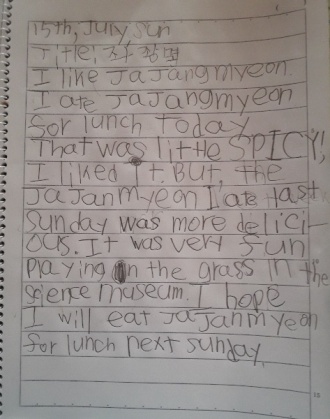 15th, July sun
Title: 짜장면
I like Jajangmyeon.
I ate Jajangmyeon
for lunch today
That was little SPICY!
I liked It. But, the
JaJanmyeon I ate last
sunday was more delici-
ous. It was very fun
playing in the grass In the
science museum. I hope
I will eat JaJanmyeon
for lunch next sunday